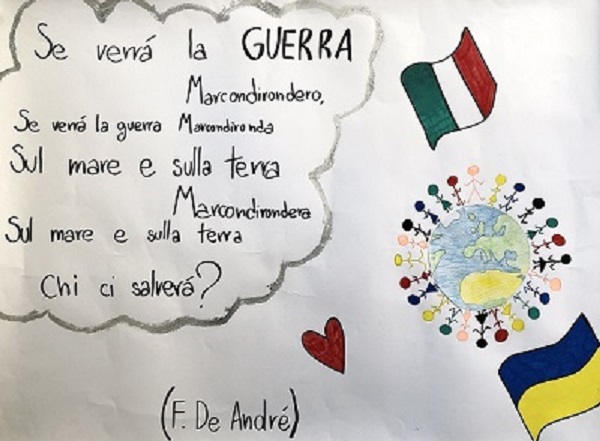 Se verrá la GUERRA
Marcondirondero,
Se verrá la guerra Marcondironda
Sul mare e sulla terra
Marcondirondera
Sul mare e sulla terra
Chi ci salverá?
(F. De André)